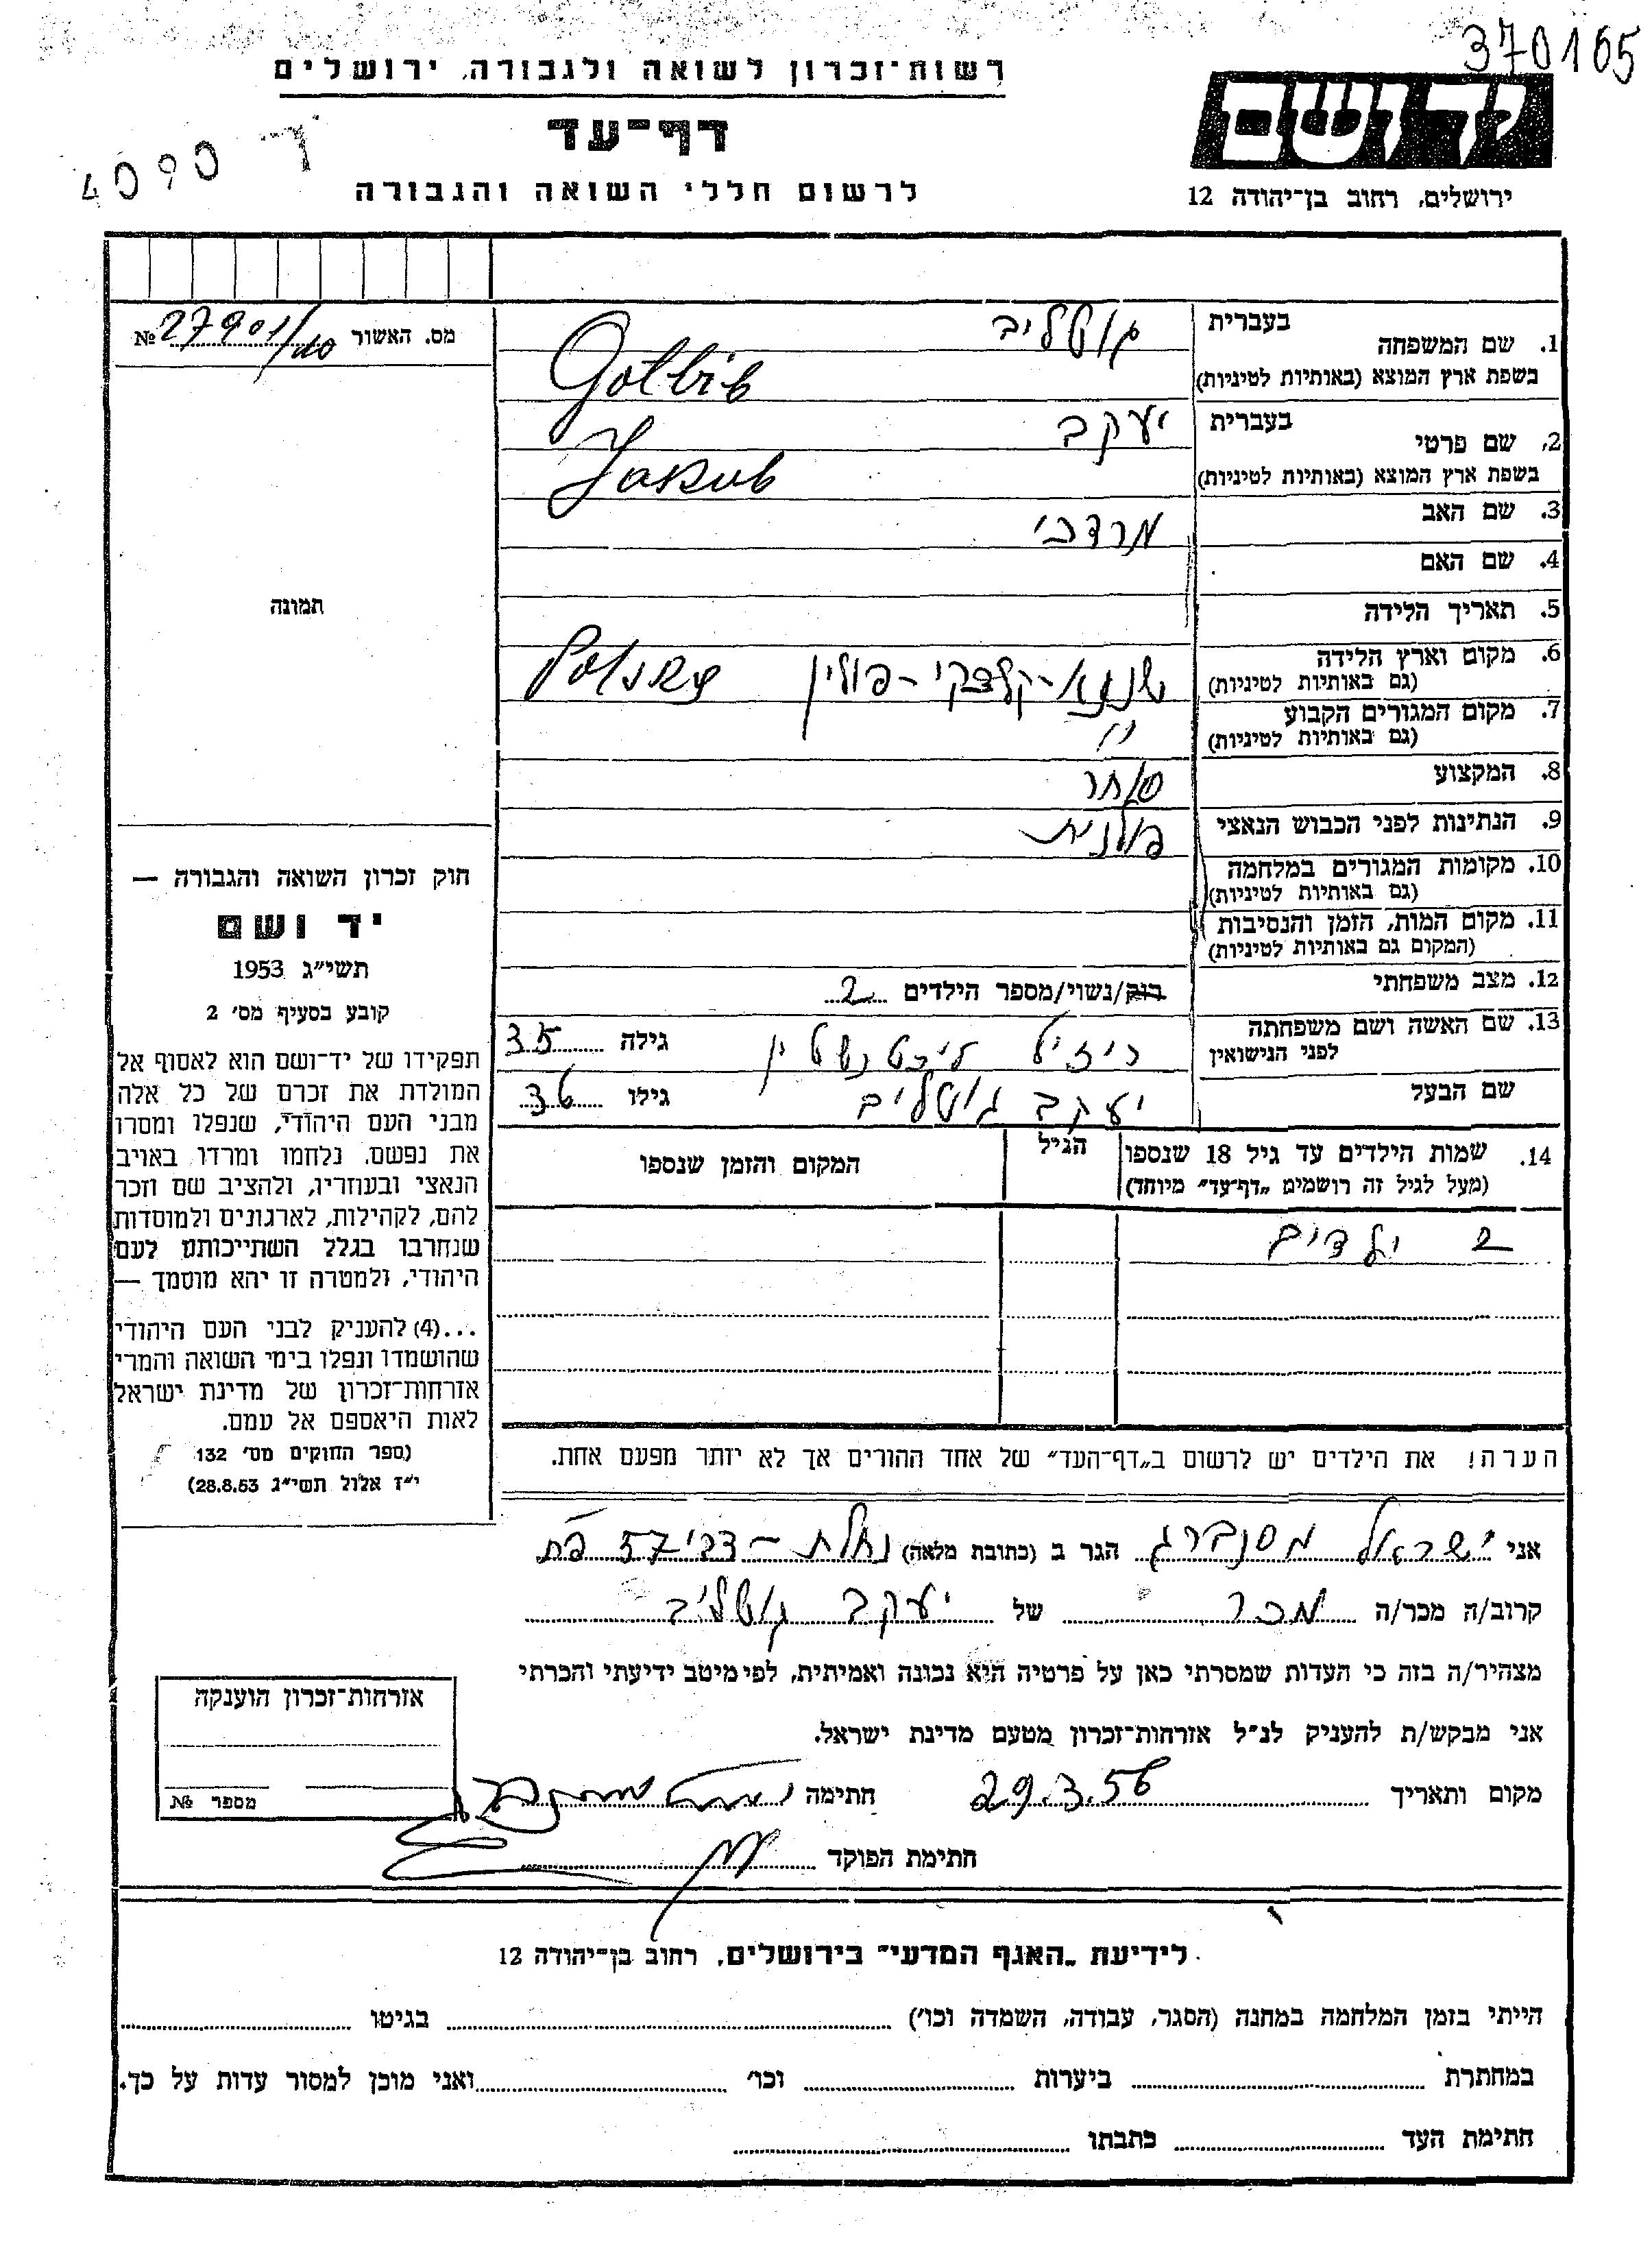 370165
רשות־זכרון לשואה ולגבורה, ירושלים
יד ושם
דף־עד
4090 ד
לרשום חללי השואה והגבורה
ירושלים, רחוב בן־יהודה 12
מס. האשור № 27901/
1. שם המשפחה בעברית גוטליב
בשפת ארץ המוצא (באותיות לטיניות) Gotlib
2. שם פרטי בעברית יעקב
בשפת ארץ המוצא (באותיות לטיניות) Jakub
3. שם האב מרדכי
4. שם האם
5. תאריך הלידה
תמונה
6. מקום וארץ הלידה פולין
(גם באותיות לטיניות)
7. מקום המגורים הקבוע ״
(גם באותיות לטיניות)
8. המקצוע סוחר
9. הנתינות לפני הכבוש הנאצי פולנית
10. מקומות המגורים במלחמה
(גם באותיות לטיניות)
11. מקום המות, הזמן והנסיבות
(המקום גם באותיות לטיניות)
12. מצב משפחתי רוק/נשוי/מספר הילדים 2
13. שם האשה ושם משפחתה לפני הנישואין רייזיל ליכטנשטיין גילה 35
שם הבעל יעקב גוטליב גילו 36
14. שמות הילדים עד גיל 18 שנספו הגיל המקום והזמן שנספו
(מעל לגיל זה רושמים „דף־עד״ מיוחד)
2 ילדים
חוק זכרון השואה והגבורה —
יד ושם
תשי״ג 1953
קובע בסעיף מס׳ 2
תפקידו של יד־ושם הוא לאסוף אל
המולדת את זכרם של כל אלה
מבני העם היהודי, שנפלו ומסרו
את נפשם, נלחמו ומרדו באויב
הנאצי ובעוזריו, ולהציב שם וזכר
להם, לקהילות, לארגונים ולמוסדות
שנחרבו בגלל השתייכותם לעם
היהודי, ולמטרה זו יהא מוסמך —
...(4) להעניק לבני העם היהודי
שהושמדו ונפלו בימי השואה והמרי
אזרחות־זכרון של מדינת ישראל
לאות היאספם אל עמם.
(ספר החוקים מס׳ 132
י״ז אלול תשי״ג 28.8.53)
הערה! את הילדים יש לרשום ב„דף־העד״ של אחד ההורים אך לא יותר מפעם אחת.
אני ישראל מסנברג הגר ב (כתובת מלאה) נחלת־צבי 57 פת
קרוב/ה מכר/ה מכר של יעקב גוטליב
מצהיר/ה בזה כי העדות שמסרתי כאן על פרטיה היא נכונה ואמיתית, לפי מיטב ידיעתי והכרתי
אני מבקש/ת להעניק לנ״ל אזרחות־זכרון מטעם מדינת ישראל.
אזרחות־זכרון הוענקה
מספר №
מקום ותאריך 29.3.56 חתימה
חתימת הפוקד
לידיעת „האגף המדעי״ בירושלים, רחוב בן־יהודה 12
הייתי בזמן המלחמה במחנה (הסגר, עבודה, השמדה וכו׳) בגיטו
במחתרת ביערות וכו׳ ואני מוכן למסור עדות על כך.
חתימת העד כתבתו